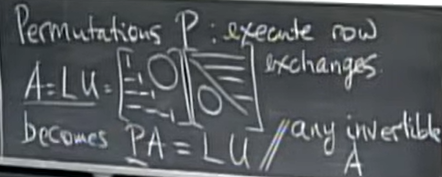 Permutations P: execute row
exchanges.
A=LU=
becomes PA = LU // any invertible
A